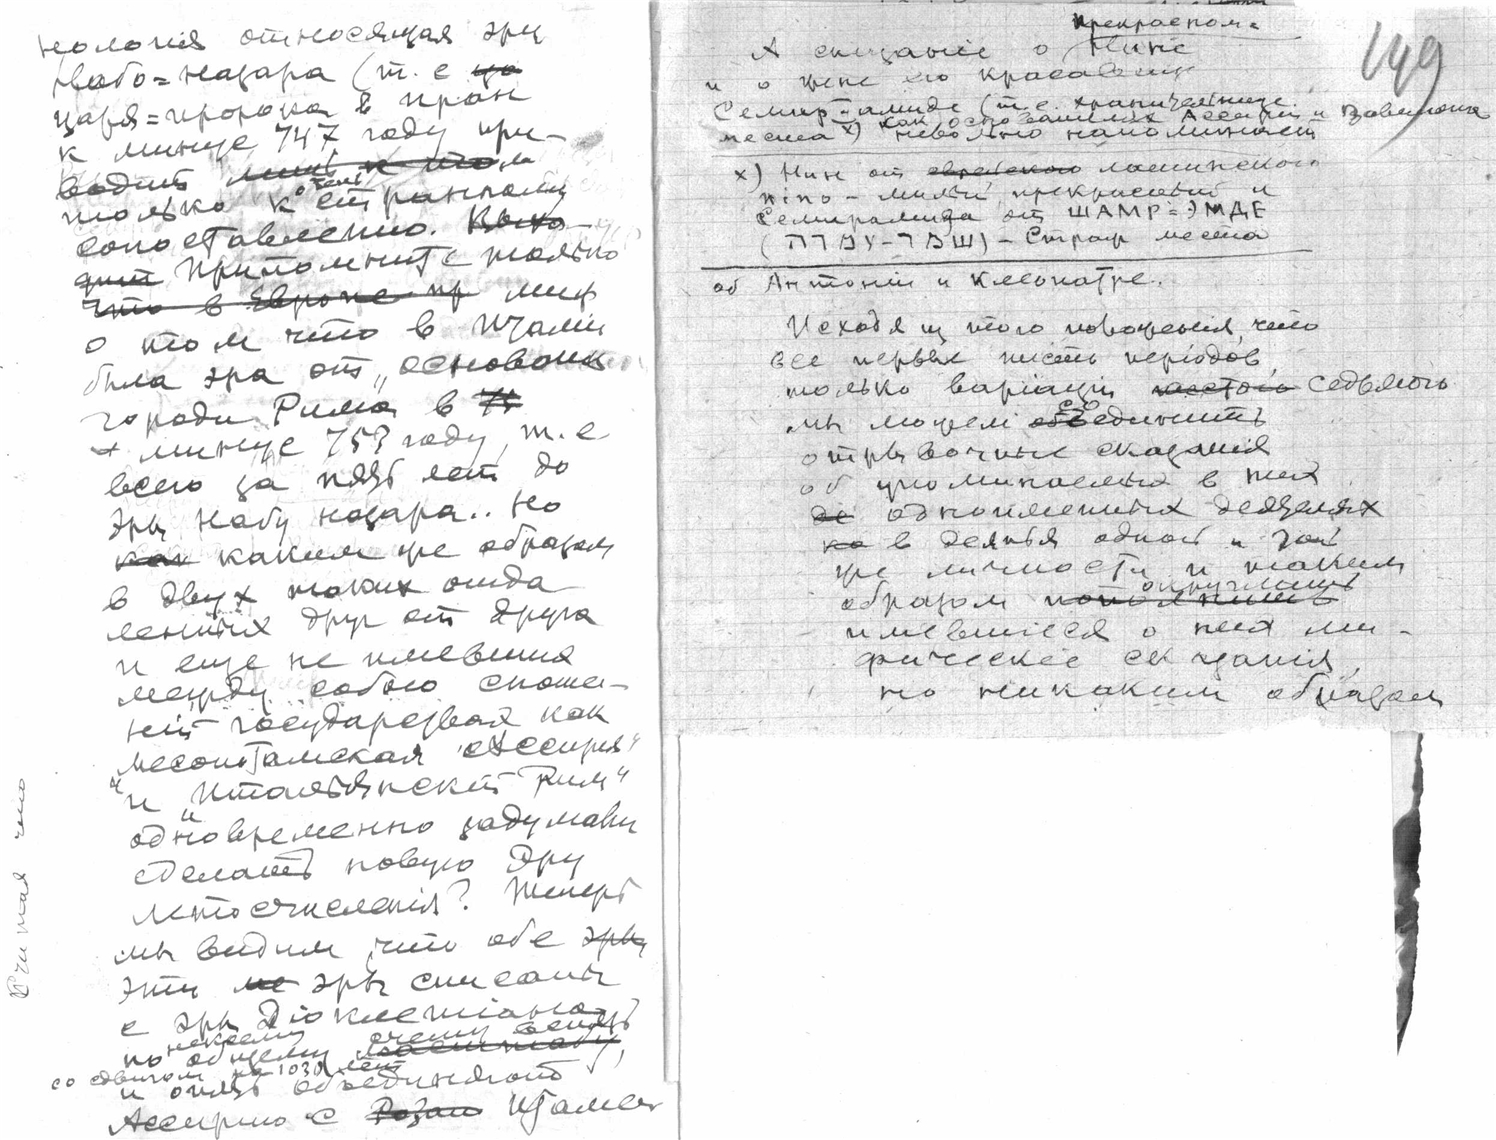 нологія относящая эру
Набо=Назара (т. е ца
царя=пророка в пран
к минус 747 году при-
водит лишь к том
только к очень странному
сопоставлению. Выхо
дит Припомните только
что в Европе пр миф
о том что в Италіи
была эра от „основанія
города Рима в
минус 753 году, т. е
всего за пять лет до
эры Набу назара.. Но
как каким же образом
в двух таких отда
ленных друг от друга
и еще не имевших
между собою сноше-
ній государствах как
месопотамская „Ассирія"
и „Итальянскій Рим"
одновременно задумали
сделать новую Эру
летосчисленія? Теперь
мы видим, что обе эры
эти не эры списаны
с эры Діоклетіана
по некоему общему счету
со сдвигом на 1030 лет
и опять объединяют
Ассирію с Италіей
Считая что
149
прекрасном=
А сказаніе о Нине
и о жене его красавице
Семирамиде (т. е. хранительнице
места x) как основателях Ассиріи и Вавилона
невольно напоминает
x) Нин от еврейского латинского
nino – милый, прекрасный и
Семирамида от ШАМР=ЭМДЕ
– Страж места
об Антоніи и Клеопатре.
Исходя из того положенія, что
все первых шесть періодов
только варіаціи шестого седьмого
мы можем объединить
отрывочные сказанія
об упоминаемых в них
одноименных деятелях
в деянья одной и той
же личности и таким
образом пополнить округлить
имевшіеся о них ми-
фическіе сказанія,
но никаким образом